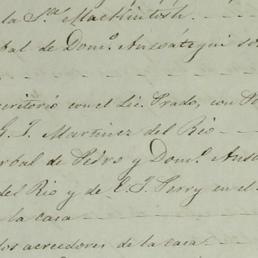 la Sra. Mackintosh
bal de Domo. Ansoátegui so
critorio con el Lic. Prado, con
G. J. Martinez del Rio
erbal de Pedro y Domo. Anso
del Rio y de E. J. Perry en el
la casa
los acreedores de la casa